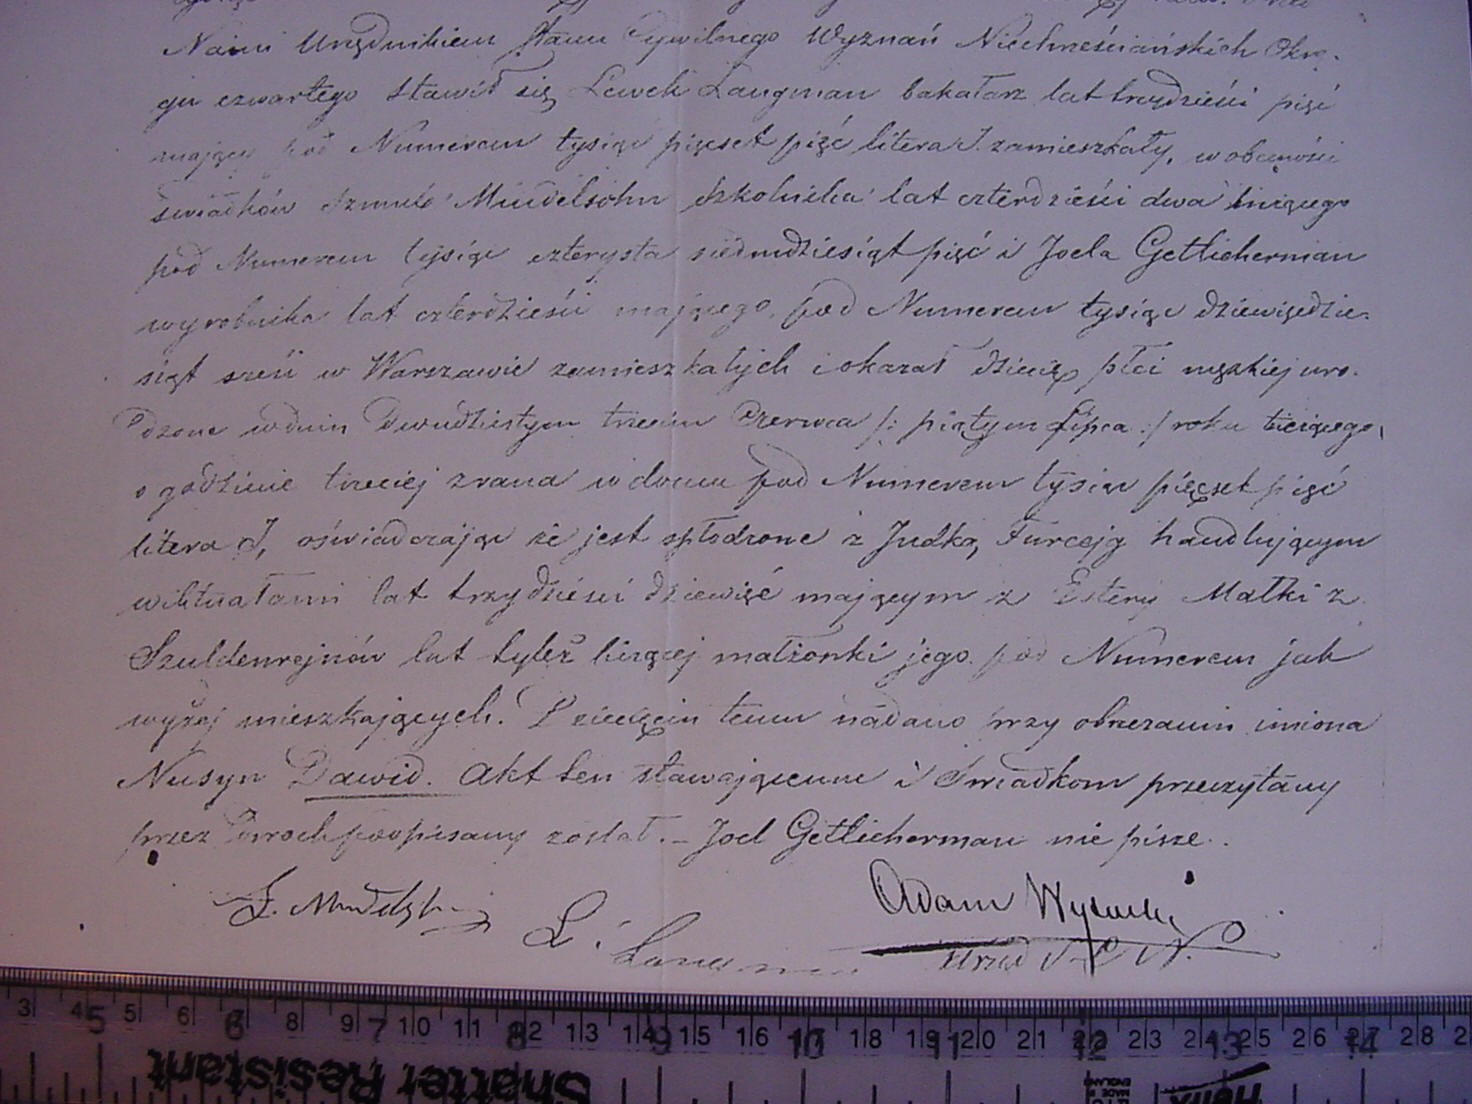 Nami Urzędnikiem Stanu Cywilnego Wyznań Niechrześciańskich Okrę-
gu czwartego stawił się Lewek Laugman bakałarz lat trzydzieści pięć
mający pod Numerem tysiąc pięcset pięć litera J. zamieszkały, w obecności
świadków Szmula Mudelsohn Szkolnika lat czterdzieści dwa liczącego
pod Numerem tysiąc czterysta siedmdziesiąt pięć i Joela Getlicherman
wyrobnika lat czterdzieści mającego, pod Numerem tysiąc dziewięćdzie-
siąt sześć w Warszawie zamieszkałych i okazał dziecię płci męzkiej uro-
dzone w dniu Dwudziestym trzecim Czerwca /: piątym Lipca :/ roku bieżącego,
o godzinie trzeciej zrana w domu pod Numerem tysiąc pięcset pięć
litera J, oświadczając że jest spłodzone z Judką Furcejg handlującym
wiktuałami lat trzydzieści dziewięć mającym z Estery Małki z
Szuldenrejnów lat tyleż liczącej małżonki jego pod Numerem jak
wyżej mieszkających. Dziecięciu temu nadano przy obrzezaniu imiona
Nusyn Dawid. Akt ten stawającemu i Świadkom przeczytany
przez dwóch podpisany został. – Joel Getlicherman nie pisze.
L. Laugman
Adam Wysocki
3 4 5 6 7 8 9 10 11 12 13 14 15 16 17 18 19 20 21 22 23 24 25 26 27 28
5 6 7 8 9 10 11 12 13 14
Shatter Resistant
MADE IN ENGLAND
Helix